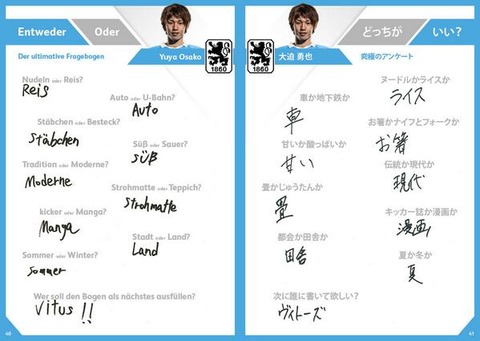 Entweder Oder
Der ultimative Fragebogen
Yuya Osako
1860
Nudeln oder Reis?
Reis
Auto oder U-Bahn?
Auto
Stäbchen oder Besteck?
Stäbchen
Süß oder Sauer?
süß
Tradition oder Moderne?
Moderne
Strohmatte oder Teppich?
Strohmatte
kicker oder Manga?
Manga
Stadt oder Land?
Land
Sommer oder Winter?
sommer
Wer soll den Bogen als nächstes ausfüllen?
Vitus!!
40
どっちが いい?
大迫 勇也
究極のアンケート
1860
ヌードルかライスか
ライス
車か地下鉄か
車
お箸かナイフとフォークか
お箸
甘いか酸っぱいか
甘い
伝統か現代か
現代
畳かじゅうたんか
畳
キッカー誌か漫画か
漫画
都会か田舎か
田舎
夏か冬か
夏
次に誰に書いて欲しい?
ヴィトーズ
41